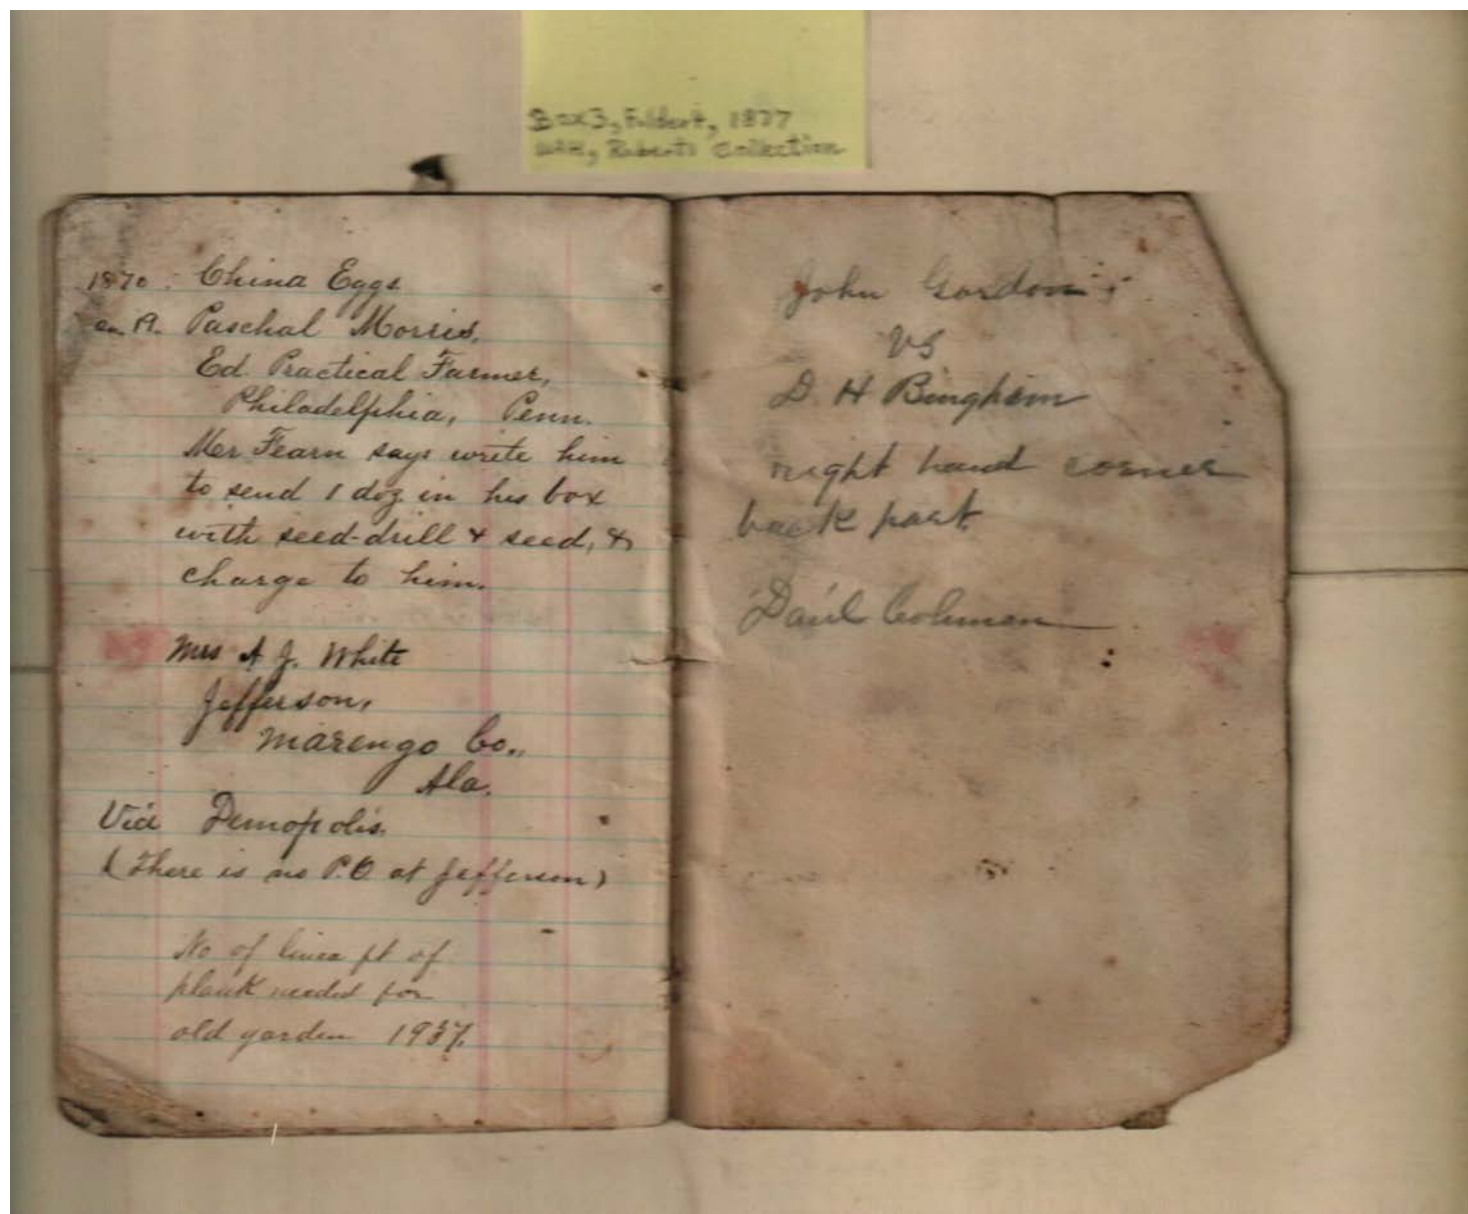 Box 3, Folder 4, 1877
UAH, Roberts Collection
1870. China Eggs
A. Paschal Morris,
Ed. Practical Farmer,
Philadelphia, Penn.
Mr Fearn says write him
to send 1 doz. in his box
with seed-drill & seed, &
charge to him.
Mrs A J. White
Jefferson,
Marengo Co.,
Ala.
Via Demopolis.
(There is no P.O at Jefferson)
No of linea ft of
plank needed for
old garden 1937.
John Gordon
vs
D. H Bingham
right hand corner
back part
Dan'l Colman